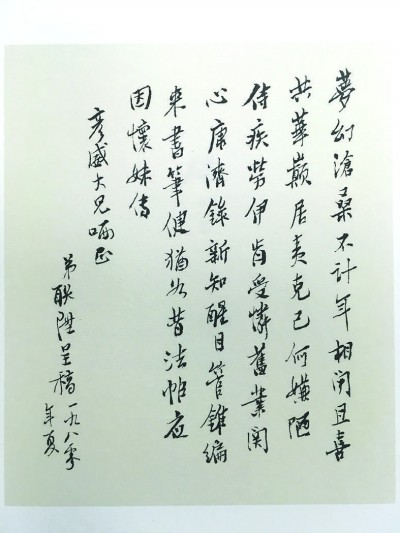 夢幻滄桒不計年相聞且喜
共華巔居夷克己何嫌陋
侍疾勞伊肯受憐舊業関
心康濟錄新知醒目管錐編
來書筆健猶昔法帖应
因懷妹傳
彥威大兄哂正
弟联陞呈稿 一九八零
年夏